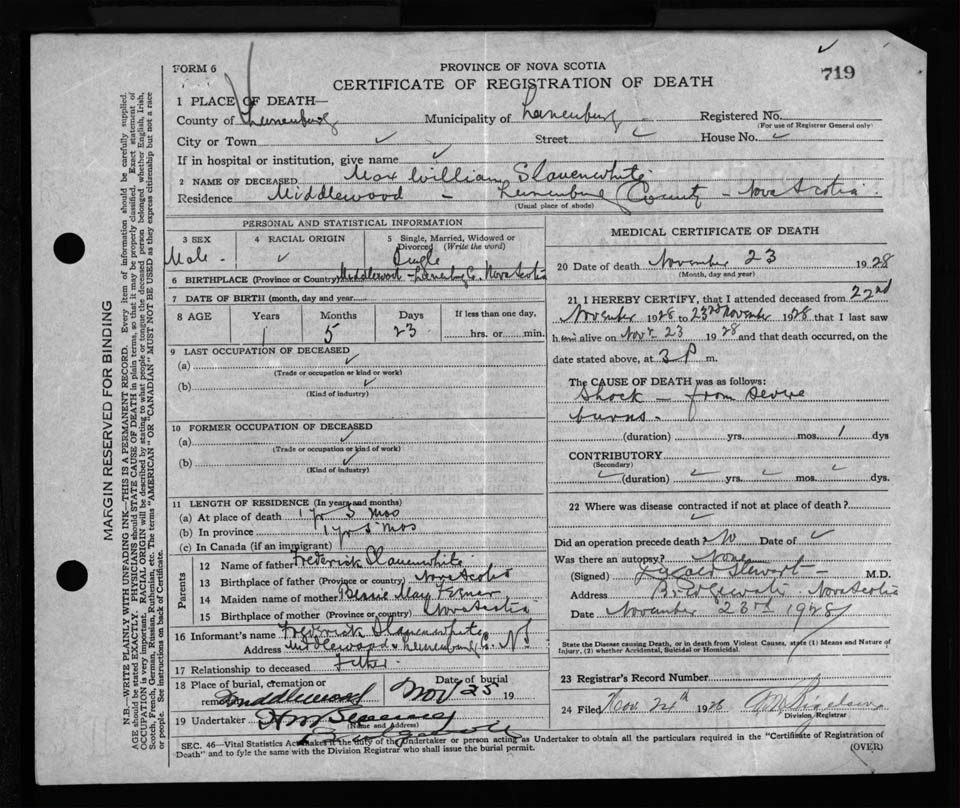 FORM 6
PROVINCE OF NOVA SCOTIA
719
CERTIFICATE OF REGISTRATION OF DEATH
1 PLACE OF DEATH—
County of Lunenburg Municipality of Lunenburg Registered No.
(For use of Registrar General only)
City or Town Street House No.
If in hospital or institution, give name
2 NAME OF DECEASED Max William Slauenwhite
Residence Middlewood - Lunenburg County - Nova Scotia
(Usual place of abode)
PERSONAL AND STATISTICAL INFORMATION
3 SEX 4 RACIAL ORIGIN 5 Single, Married, Widowed or Divorced (Write the word)
Male Single
6 BIRTHPLACE (Province or Country) Middlewood Lunenburg Co. Nova Scotia
7 DATE OF BIRTH (month, day and year)
8 AGE Years Months Days If less than one day,
1 5 23 hrs. or min.
9 LAST OCCUPATION OF DECEASED
(a)
(Trade or occupation or kind or work)
(b)
(Kind of industry)
10 FORMER OCCUPATION OF DECEASED
(a)
(Trade or occupation or kind of work)
(b)
(Kind of industry)
11 LENGTH OF RESIDENCE (In years and months)
(a) At place of death 1 yr 5 mos
(b) In province 1 yr 5 mos
(c) In Canada (if an immigrant)
Parents
12 Name of father Frederick Slauenwhite
13 Birthplace of father (Province or country) Nova Scotia
14 Maiden name of mother Bessie May
15 Birthplace of mother (Province or country) Nova Scotia
16 Informant's name Frederick Slauenwhite
Address Middlewood Lunenburg Co. N S
17 Relationship to deceased Father
18 Place of burial, cremation or removal Middlewood Date of burial Nov 25 19
19 Undertaker
(Name and Address)
Bridgewater
MEDICAL CERTIFICATE OF DEATH
20 Date of death November 23 1928
(Month, day and year)
21 I HEREBY CERTIFY, that I attended deceased from 22nd
November 1928 to 23rd November 1928 that I last saw
h alive on Nov 23 1928 and that death occurred, on the
date stated above, at 3 P m.
The CAUSE OF DEATH was as follows:
Shock - from severe
burns -
(duration) yrs. mos. 1 dys
CONTRIBUTORY
(Secondary)
(duration) yrs. mos. dys.
22 Where was disease contracted if not at place of death?
Did an operation precede death? No Date of
Was there an autopsy? None
(Signed) Stewart M.D.
Address Bridgewater Nova Scotia
Date November 23rd 1928
State the Disease causing Death, or in death from Violent Causes, state (1) Means and Nature of
Injury, (2) whether Accidental, Suicidal or Homicidal.
23 Registrar's Record Number
24 Filed Nov. 24th 1928
Division Registrar
SEC. 46—Vital Statistics Act makes it the duty of the Undertaker or person acting as Undertaker to obtain all the particulars required in the "Certificate of Registration of
Death" and to fyle the same with the Division Registrar who shall issue the burial permit.
(OVER)
MARGIN RESERVED FOR BINDING
N.B.—WRITE PLAINLY WITH UNFADING INK—THIS IS A PERMANENT RECORD. Every item of information should be carefully supplied.
AGE should be stated EXACTLY. PHYSICIANS should STATE CAUSE OF DEATH in plain terms, so that it may be properly classified. Exact statement of
OCCUPATION is very important. RACIAL ORIGIN will be described by stating to what people or tongue the deceased person belonged whether English, Irish,
Scotch, French, German, Russian, Ruthenian, etc. The terms "AMERICAN" OR "CANADIAN" MUST NOT BE USED as they express citizenship but not a race
or people. See instructions on back of Certificate.